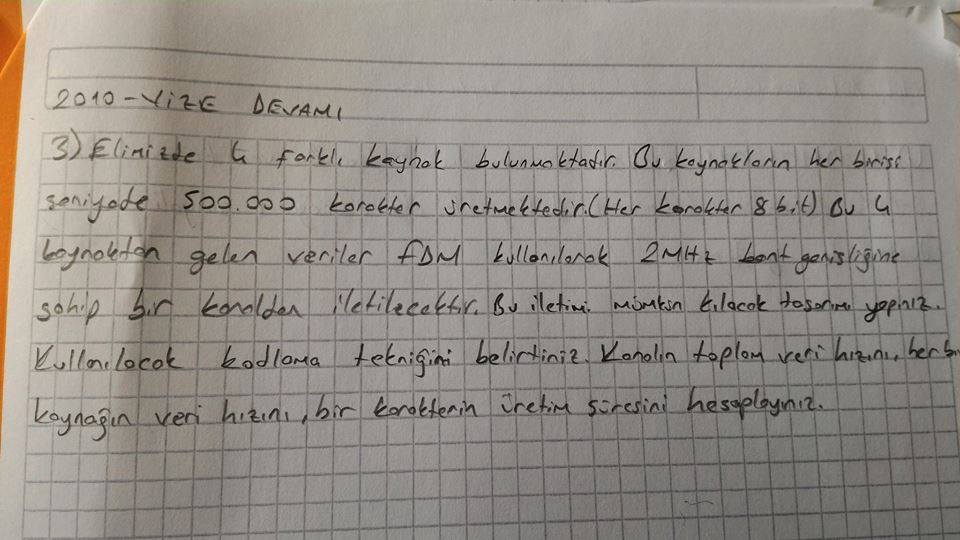 2010-VİZE DEVAMI
3) Elimizde 4 farklı kaynak bulunmaktadır. Bu kaynakların her birisi
saniyede 500.000 karakter üretmektedir. (Her karakter 8 bit) Bu 4
kaynaktan gelen veriler FDM kullanılarak 2MHz bant genişliğine
sahip bir kanaldan iletilecektir. Bu iletimi mümkün kılacak tasarımı yapınız.
Kullanılacak kodlama tekniğini belirtiniz. Kanalın toplam veri hızını, her bir
kaynağın veri hızını, bir karakterin üretim süresini hesaplayınız.